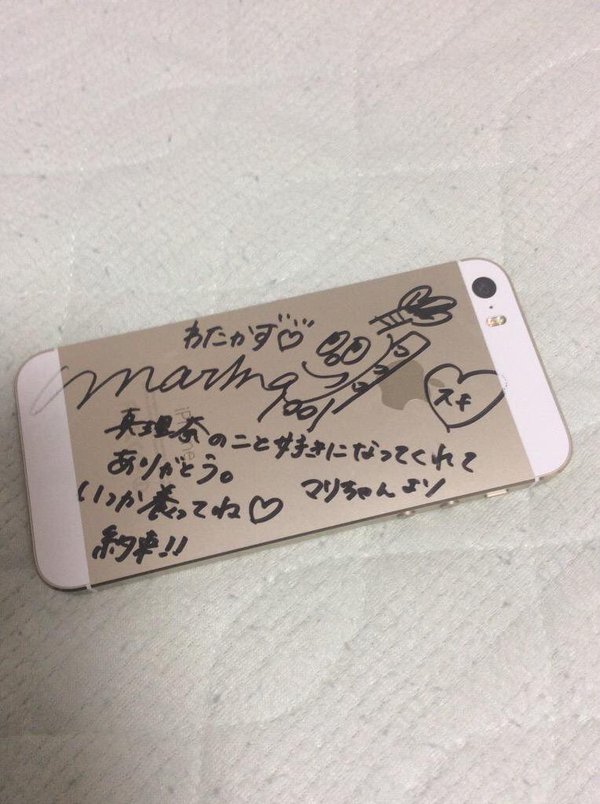 わたかず♡
marina
スキ
真理奈のこと好きになってくれて
ありがとう。
いつか養ってね♡ マリちゃんより
約束!!